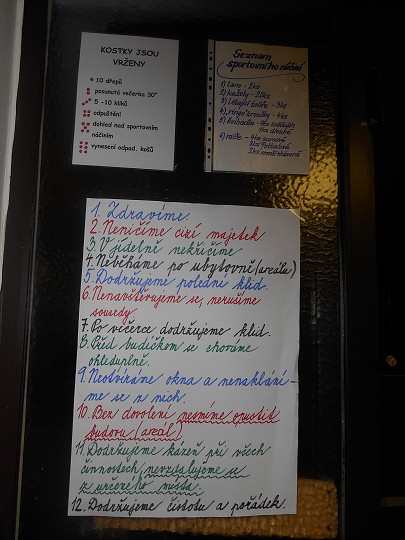 KOSTKY JSOU
VRŽENY
10 dřepů
posunutá večerka 30"
5 -10 kliků
odpuštění
dohled nad sportovním
náčiním
vynesení odpad. košů
Seznam
sportovního náčiní
1) Lano - 2ks
2) kužely -
3) létající talíře - 3ks
4) ringo kroužky - 4ks
5) švihadla - 4ks krátké
6) míče. - 4ks
1. Zdravíme.
2. Neničíme cizí majetek
3. V jídelně nekřičíme
4. Neběháme po ubytovně (areálu)
5. Dodržujeme polední klid.
6. Nenavštěvujeme se, nerušíme
sousedy
7. Po večerce dodržujeme klid.
8. Před budíčkem se chováme
ohleduplně.
9. Neotvíráme okna a nenaklání-
me se z nich.
10. Bez dovolení nesmíme opustit
budovu (areál)
11. Dodržujeme kázeň při všech
činnostech, nevzdalujeme se
z určeného místa.
12. Dodržujeme čistotu a pořádek.